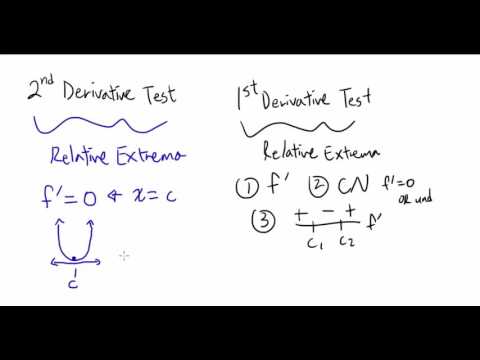 2nd Derivative Test
Relative Extrema
f'=0 & x=c
c
1st Derivative Test
Relative Extrema
① f' ② CN f'=0
OR und
③ + - + f'
c1 c2